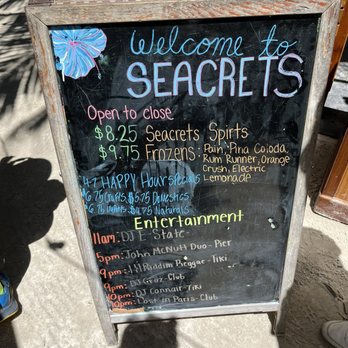 Welcome to
SEACRETS
Open to close
$8.25 Seacrets Spirts
$9.75 Frozens: Pain, Pina Colada,
Rum Runner, Orange
Crush, Electric
Lemonade
4-7 HAPPY Hour specials
$6.75 Crafts, $5.75 Domestics
$4.75 Naturals
Entertainment
11am: DJ E-State
5pm: John McNutt Duo - Pier
9pm: Riddim Reggae - Tiki
9pm: DJ Groz - Club
10pm: DJ Connair - Tiki
10pm: Lost in Paris - Club